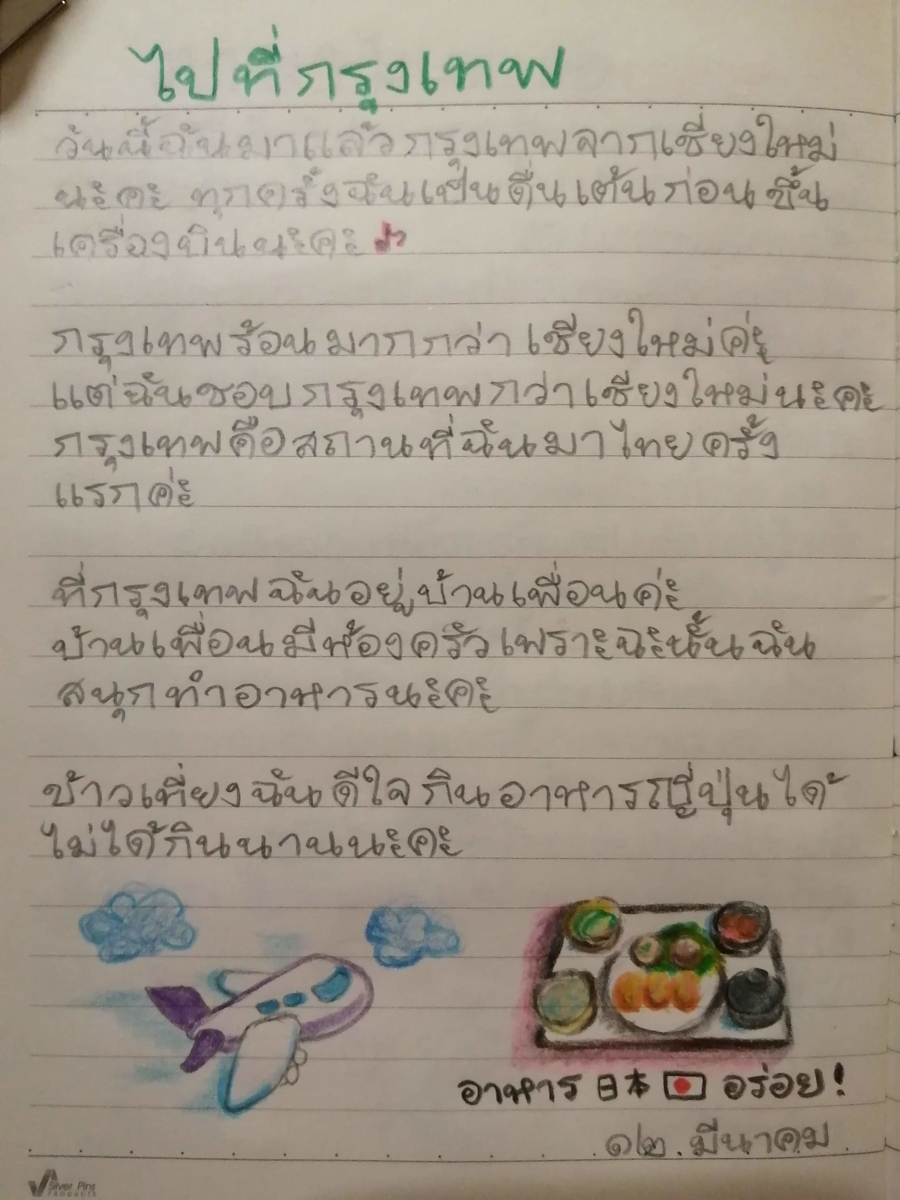 ไปที่กรุงเทพ
วันนี้ฉันมาแล้วกรุงเทพจากเชียงใหม่
นะคะ ทุกครั้งฉันเป็นตื่นเต้นก่อนขึ้น
เครื่องบินนะคะ ♪
กรุงเทพร้อนมากกว่าเชียงใหม่ค่ะ
แต่ฉันชอบกรุงเทพกว่าเชียงใหม่นะคะ
กรุงเทพคือสถานที่ฉันมาไทยครั้ง
แรกค่ะ
ที่กรุงเทพฉันอยู่บ้านเพื่อนค่ะ
บ้านเพื่อนมีห้องครัวเพราะฉะนั้นฉัน
สนุกทำอาหารนะคะ
ข้าวเที่ยงฉันดีใจกินอาหารญี่ปุ่นได้
ไม่ได้กินนานนะคะ
อาหาร 日本 🇯🇵 อร่อย!
๑๒.มีนาคม
Silver Pins
PRODUCTS